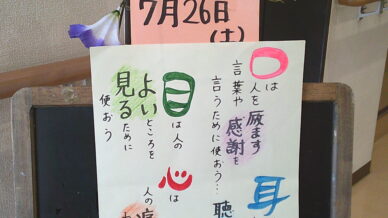 7月26日
(土)
口は
人を励ます
言葉や感謝を
言うために使おう…
耳
聴
目は人の
よいところを
見るために
使おう
心は
人の